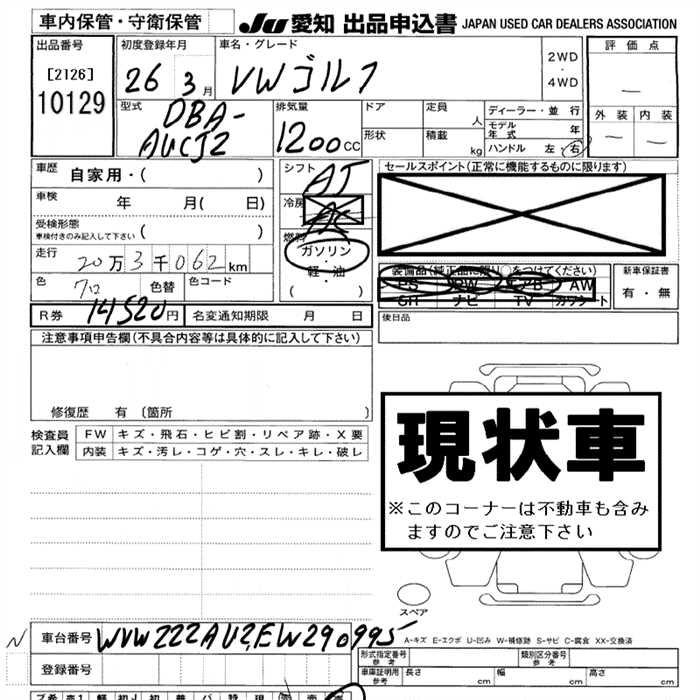 車内保管・守衛保管
JU 愛知 出品申込書 JAPAN USED CAR DEALERS ASSOCIATION
出品番号
[2126]
10129
初度登録年月
26 3月
車名・グレード
VWゴルフ
2WD
・
4WD
評価点
—
外装 内装
— —
型式
DBA-
AUCJZ
排気量
1200cc
ドア
形状
定員 人
積載 kg
ディーラー・並 行
モデル年式 年
ハンドル 左・右
車歴 自家用・( )
車検 年 月( 日)
受検形態
車検付きのみ記入して下さい ( )
走行
20万3千062km
色 色替 色コード
シフト
AT
冷房
燃料
ガソリン
軽・油
( )
セールスポイント(正常に機能するものに限ります)
装備品(純正品に限り○をつけてください)
PS PW エアB AW
SR ナビ TV カワシート
新車保証書
有・無
R券 14520円
名変通知期限 月 日
後日品
注意事項申告欄(不具合内容等は具体的に記入して下さい)
修復歴 有 〔箇所 〕
検査員
記入欄
FW キズ・飛石・ヒビ割・リペア跡・X要
内装 キズ・汚レ・コゲ・穴・スレ・キレ・破レ
現状車
※このコーナーは不動車も含み
ますのでご注意下さい
スペア
車台番号 WVWZZZAUZEW290995
A-キズ E-エクボ U-凹み W-補修跡 S-サビ C-腐食 XX-交換済
登録番号
形式指定番号
参考
類別区分番号
参考
車庫証明用
参考
長さ cm 幅 cm 高さ cm